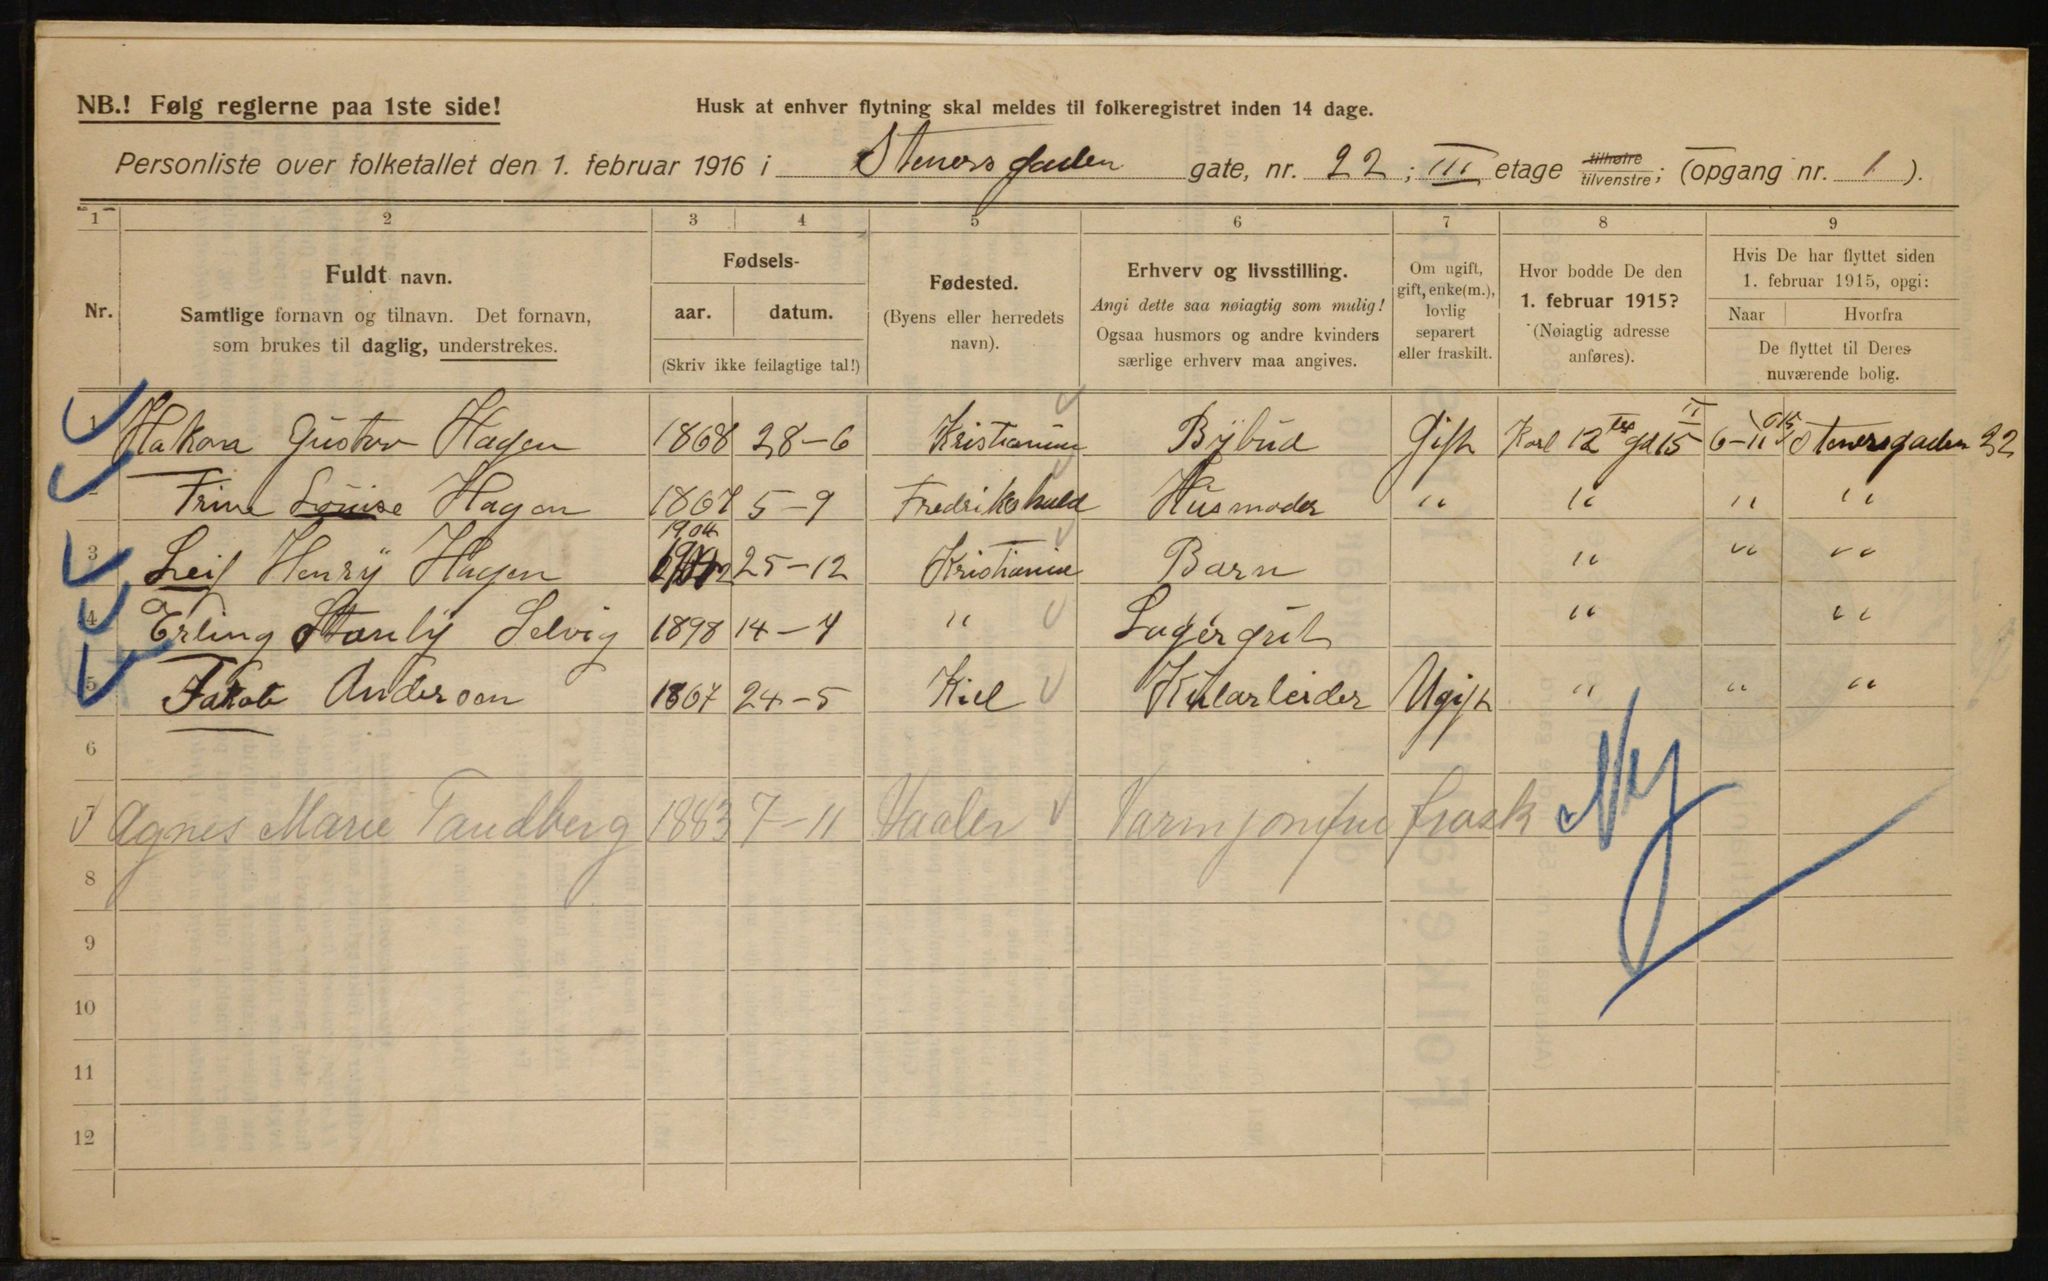 NB.! Følg reglerne paa 1ste side!
Husk at enhver flytning skal meldes til folkeregistret inden 14 dage.
Personliste over folketallet den 1. februar 1916 i Stenersgaden gate, nr. 22; III etage tilhøire tilvenstre; (opgang nr. 1).
1 2 3 4 5 6 7 8 9
Nr.
Fuldt navn.
Samtlige fornavn og tilnavn. Det fornavn,
som brukes til daglig, understrekes.
Fødsels-
aar. datum.
(Skriv ikke feilagtige tal!)
Fødested.
(Byens eller herredets
navn).
Erhverv og livsstilling.
Angi dette saa nøiagtig som mulig!
Ogsaa husmors og andre kvinders
særlige erhverv maa angives.
Om ugift,
gift, enke(m.),
lovlig
separert
eller fraskilt.
Hvor bodde De den
1. februar 1915?
(Nøiagtig adresse
anføres).
Hvis De har flyttet siden
1. februar 1915, opgi:
Naar Hvorfra
De flyttet til Deres
nuværende bolig.
1 Hakon Gustav Hagen 1868 28-6 Kristiania Bybud Gift Karl 12 tes gd 15 II 6-11 Stenersgaden 22
2 Trine Louise Hagen 1867 5-9 Fredrikshald Husmoder " " " "
3 Leif Henry Hagen 1904 25-12 Kristiania Barn " " "
4 Erling Stanly Selvig 1898 14-4 " Lagergut " "
5 Jakob Anderson 1867 24-5 Kiel Kularbeider Ugift " " "
6
7 Agnes Marie Tandberg 1883 7-11 Vaaler Varmjomfru frask Ny
8
9
10
11
12